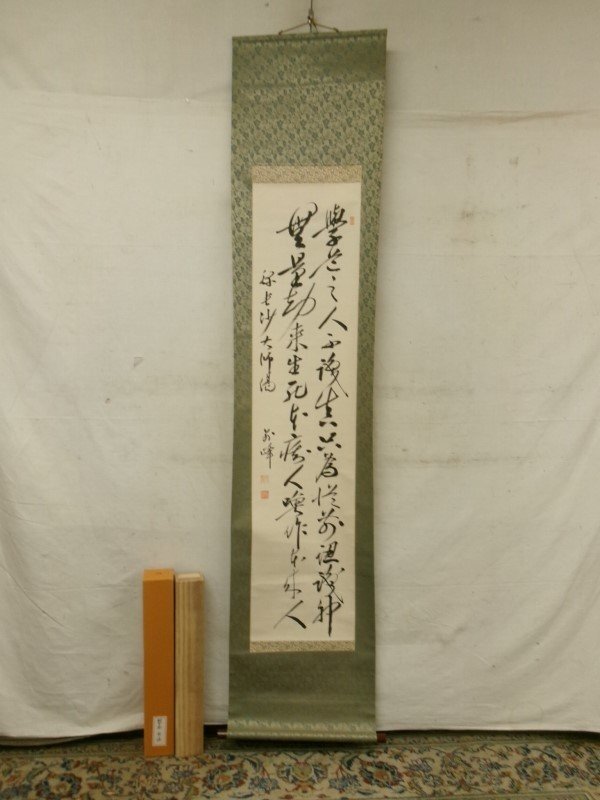 學道之人不識真只為從前認識神
無量劫来生死本癡人喚作本来人
録長沙大師偈